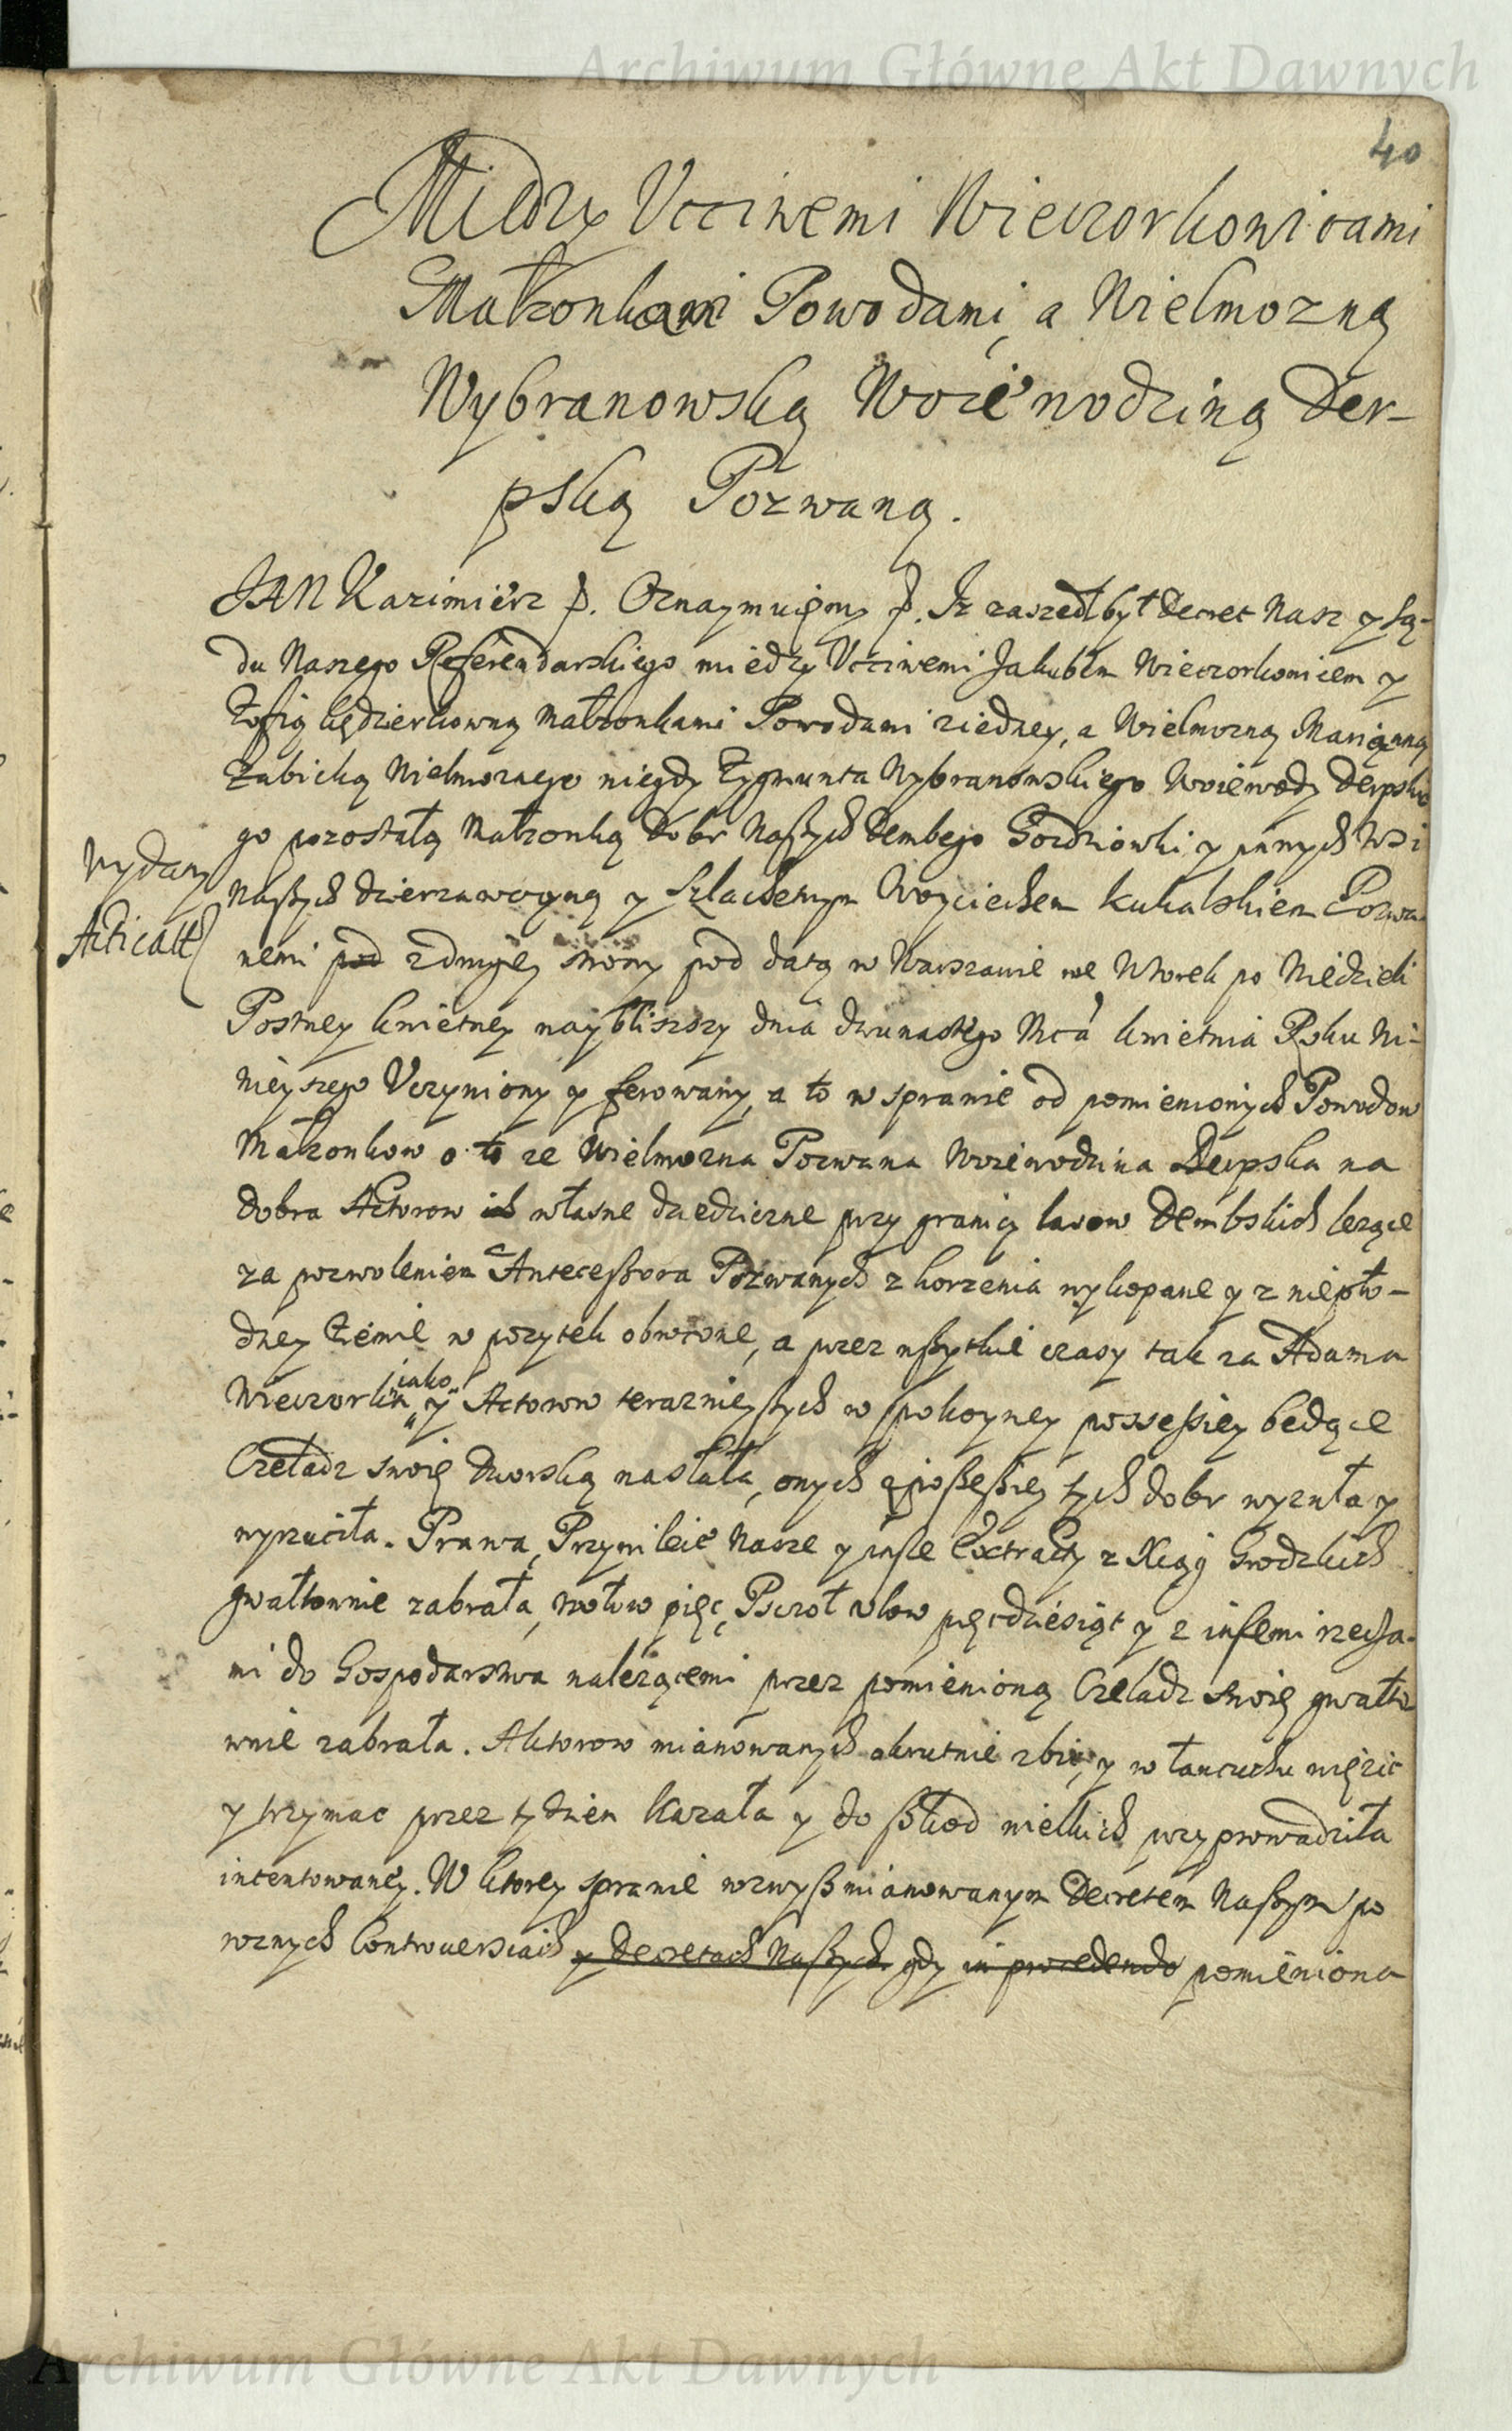 Archiwum Główne Akt Dawnych
40
Miedzy Vcciwemi Wieczorkowicami
Małzonkami Powodami, a Wielmozną
Wybranowską Woiewodziną Der-
pską Pozwaną.
JAN Kazimierz p. Oznaymuięmy p. Iz zaszedł był Decret Nasz y Są-
du Naszego Referendarskiego miedzy Vcciwemi Jakubem Wieczorkowicem y
Zofią Kędzierkowną Małzonkami Powodami ziedney, a Wielmozną Marięnną
Zabicką Wielmoznego niegdy Zygmunta Wybranowskiego Woiewody Derpskie
go pozostałą Małzonką Dobr Naszych Dembego Gozdziowki y innych Wsi
Naszych dzierzawczyną y Szlachetnym Woyciechem Kukalskiem Pozwa-
nemi pod zdrugięy strony pod datą w Warszawie we Wtorek po Niedzieli
Postney kwietney naybliszszy dnia dwunastego Mca kwietnia Roku Ni-
nieyszego Vczyniony y ferowany, a to w sprawie od pomienionych Powodow
Małzonkow o to ze Wielmozna Pozwana Woiewodzina Derpska na
dobra Actorow ich własne dziedziczne przy granicy lasow Dembskich lezące
za pozwoleniem Antecessora Pozwanych z korzenia wykopane y z niepło-
dney Ziemie w pozytek obrocone, a przez wszytkie czasy tak za Adama
Wieczorka, iako y Actorow teraznieyszych w spokoyney possessiey będące
Czeladz swoię Dworską nasłała, onych z possessiey tych dobr wyzuła y
wyrzuciła. Prawa, Przywileie Nasze y insze Extracty z Xiąg Grodzkich
gwałtownie zabrała, wołow pięc, Pszczoł vlow pięcdziesiąt y z inszemi rzecza-
mi do Gospodarstwa nalezącemi przez pomienioną Czeladz swoię gwałto
wnie zabrała. Aktorow mianowanych okrutnie zbic, y w łancuchu więzic
y trzymac przez tydzien kazała y do szkod wielkich przyprowadziła
intentowaney. W ktorey sprawie wzwysz mianowanym Decretem Naszym po
roznych Controuersiach y Decretach Naszych gdy in procedendo pomieniona
Wydany
Acticatt
Archiwum Główne Akt Dawnych